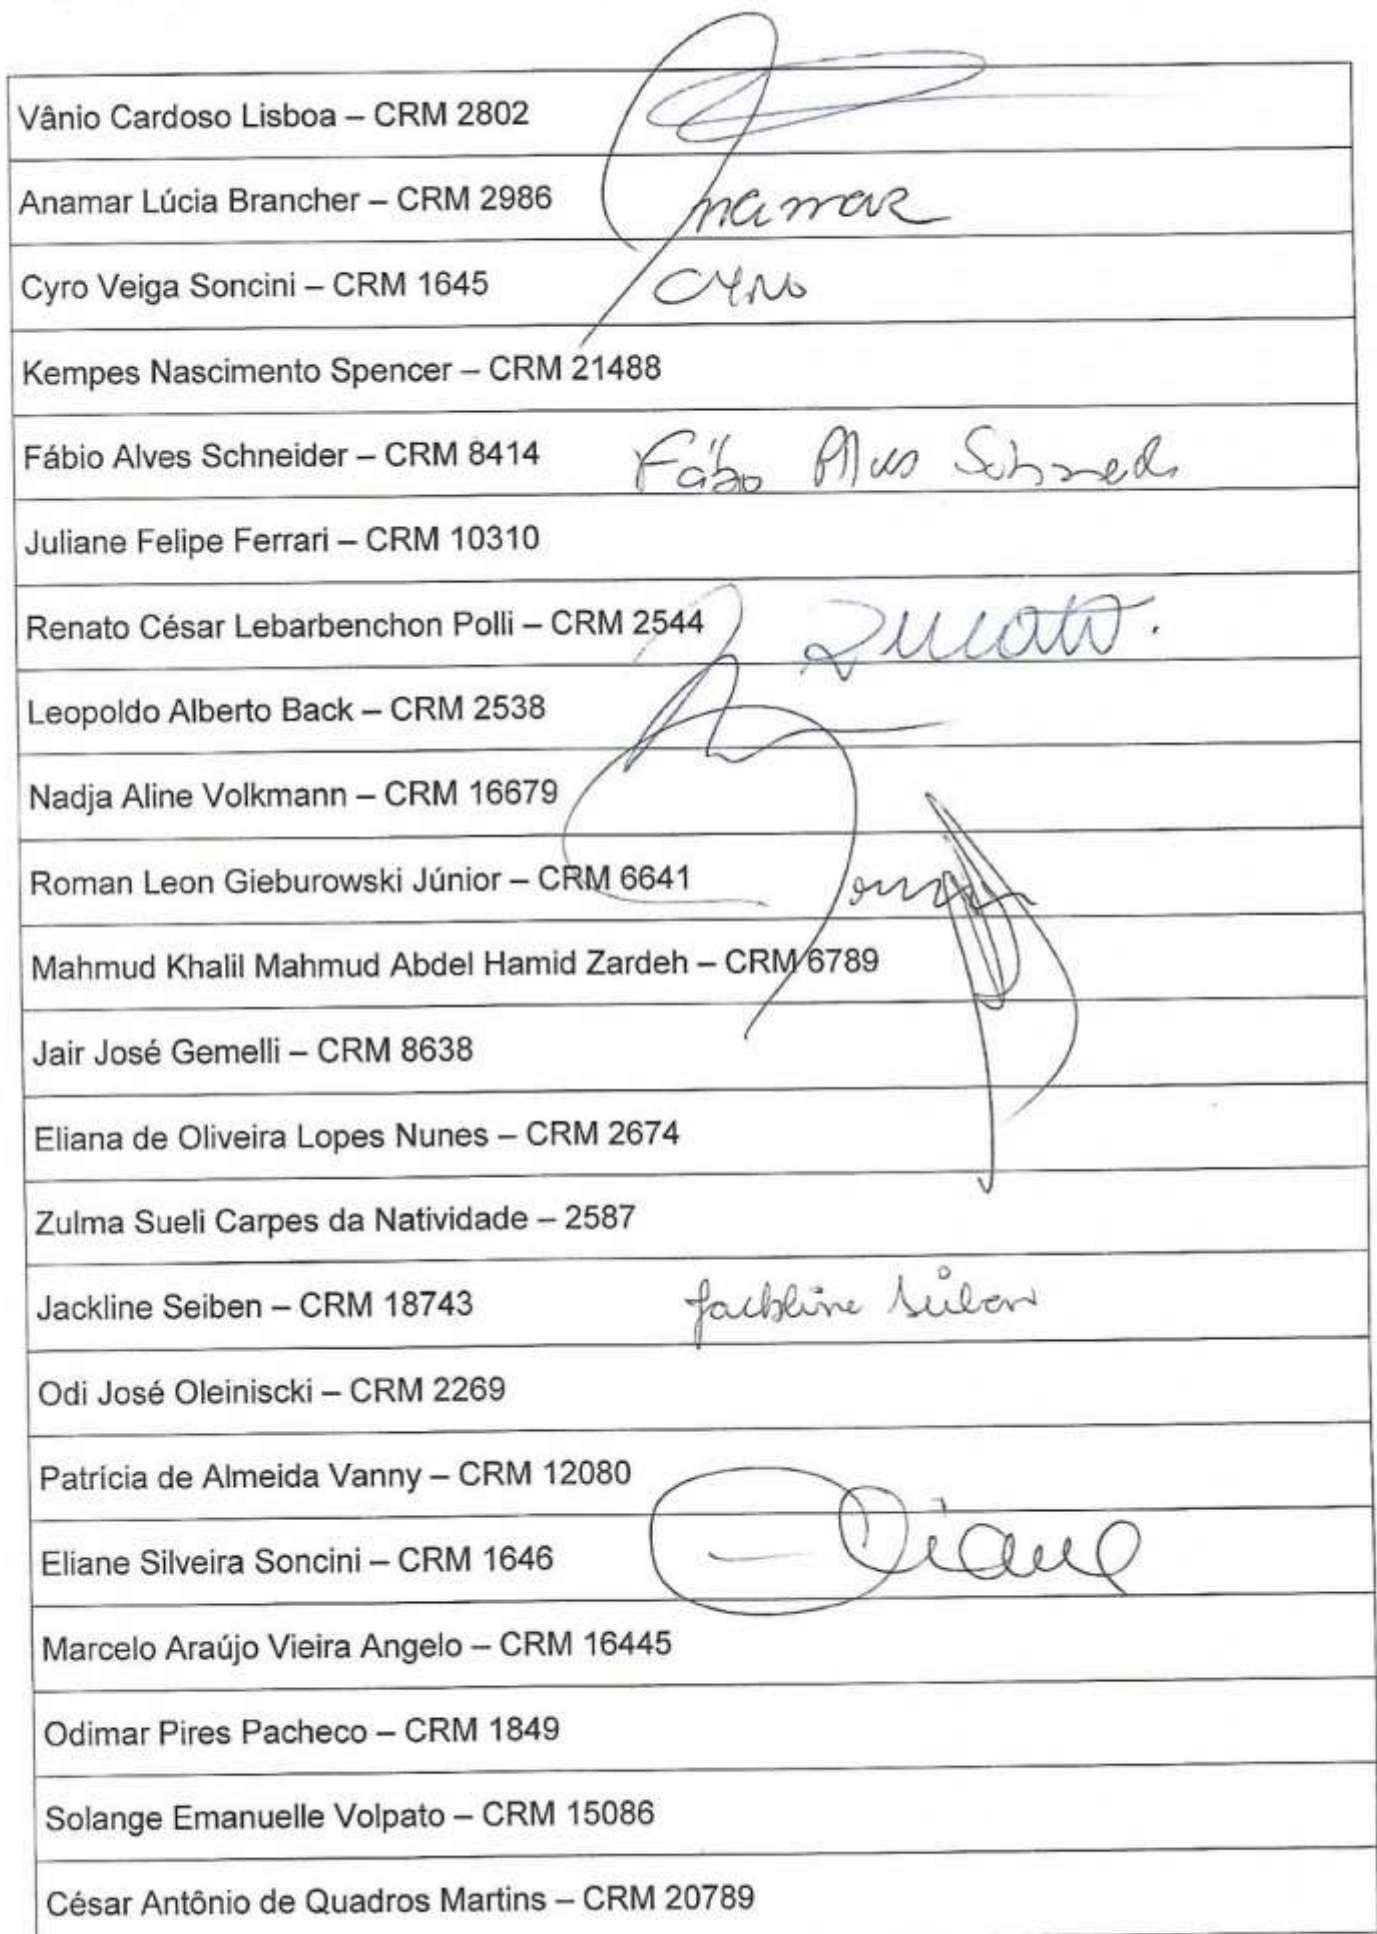 Vânio Cardoso Lisboa – CRM 2802
Anamar Lúcia Brancher – CRM 2986 Anamar
Cyro Veiga Soncini – CRM 1645 Cyro
Kempes Nascimento Spencer – CRM 21488
Fábio Alves Schneider – CRM 8414 Fábio Alves Schneider
Juliane Felipe Ferrari – CRM 10310
Renato César Lebarbenchon Polli – CRM 2544 Renato.
Leopoldo Alberto Back – CRM 2538
Nadja Aline Volkmann – CRM 16679
Roman Leon Gieburowski Júnior – CRM 6641
Mahmud Khalil Mahmud Abdel Hamid Zardeh – CRM 6789
Jair José Gemelli – CRM 8638
Eliana de Oliveira Lopes Nunes – CRM 2674
Zulma Sueli Carpes da Natividade – 2587
Jackline Seiben – CRM 18743 Jackline Seiben
Odi José Oleiniscki – CRM 2269
Patrícia de Almeida Vanny – CRM 12080
Eliane Silveira Soncini – CRM 1646 Eliane
Marcelo Araújo Vieira Angelo – CRM 16445
Odimar Pires Pacheco – CRM 1849
Solange Emanuelle Volpato – CRM 15086
César Antônio de Quadros Martins – CRM 20789